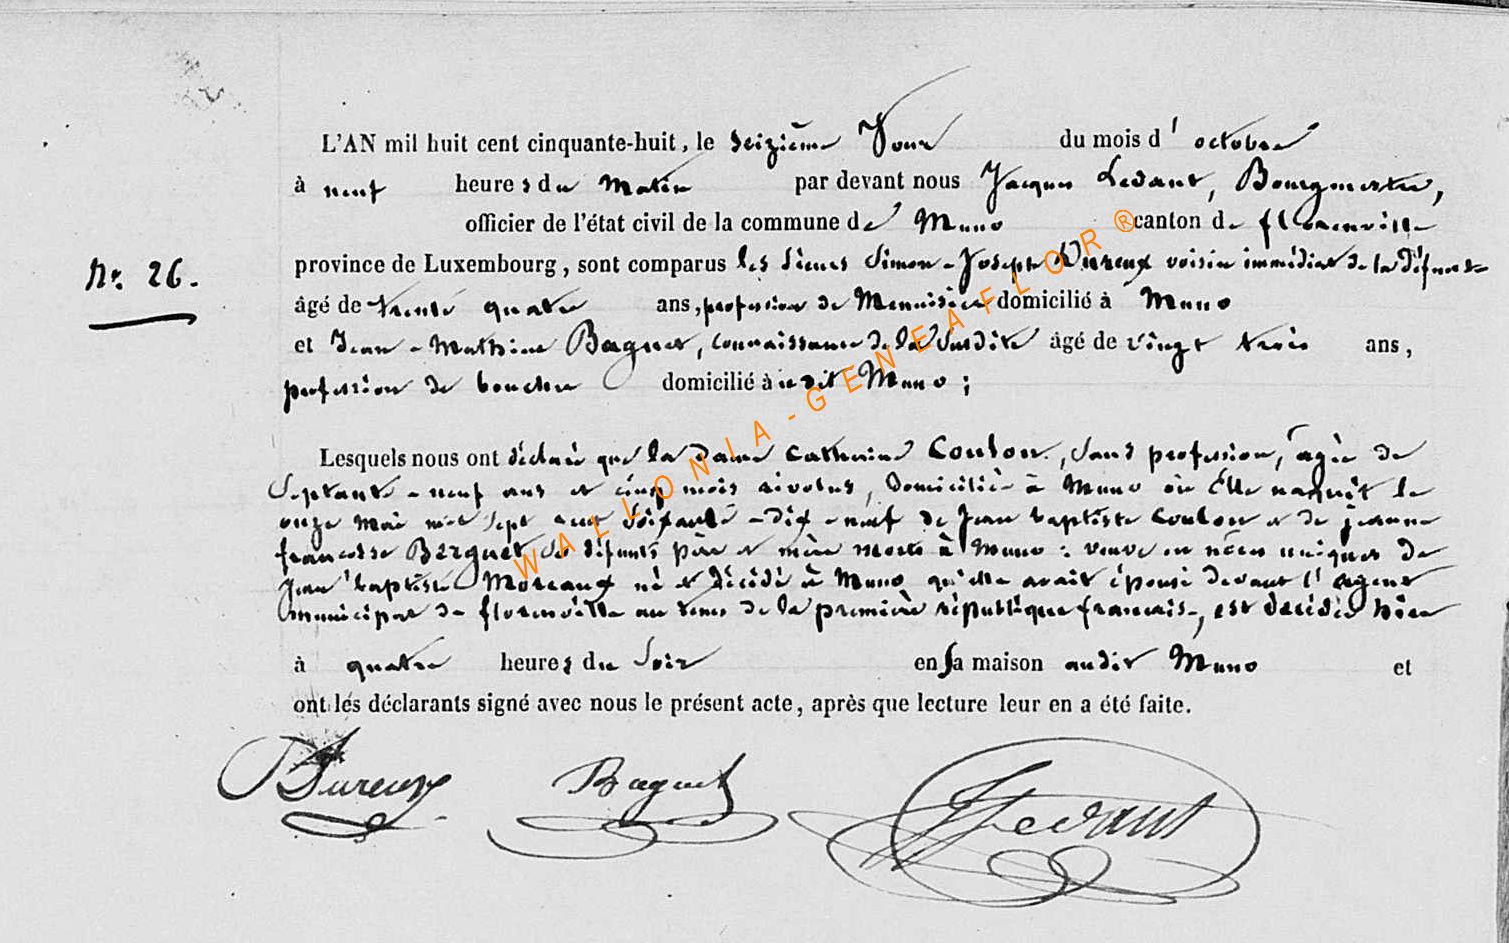 L'AN mil huit cent cinquante-huit, le seizième Jour du mois d'octobre
à neuf heures du Matin par devant nous Jacques Ledant, Bourgmestre,
officier de l'état civil de la commune de Muno canton de florenville
Nr. 26.
province de Luxembourg, sont comparus les sieurs Simon-Joseph Dureux voisin immédiat de la défunte
âgé de trente quatre ans, profession de Menuisier domicilié à Muno
et Jean-Mathieu Baguet, connaissance de la susdite âgé de vingt trois ans,
profession de boucher domicilié à udit Muno;
Lesquels nous ont déclaré que la Dame Catherine Coulon, sans profession, agée de
Septante-neuf ans et cinq mois révolus, Domiciliée à Muno où Elle naquit le
onze Mai mil sept cent soixante-dix-neuf de Jean baptiste Coulon et de jeanne
françoise Berguet ses défunts père et mère morts à Muno: veuve en nöces uniques de
Jean baptiste Moreaux né et décédé à Muno qu'elle avait épousé devant l'agent
municipal de florenville au tems de la première république française, est décédée hier
à quatre heures du soir en sa maison audit Muno et
ont les déclarants signé avec nous le présent acte, après que lecture leur en a été faite.
Dureux Baguet JLedant
WALLONIA-GENEAFLOR®